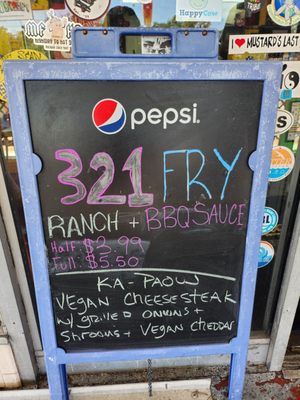 HappyCow
I ♥ MUSTARD'S LAST
pepsi.
321 FRY
RANCH + BBQ SAUCE
Half: $3.99
Full: $5.50
KA-PAOW
VEGAN CHEESESTEAK
W/ GRILLED ONIONS +
SHROOMS + VEGAN CHEDDAR